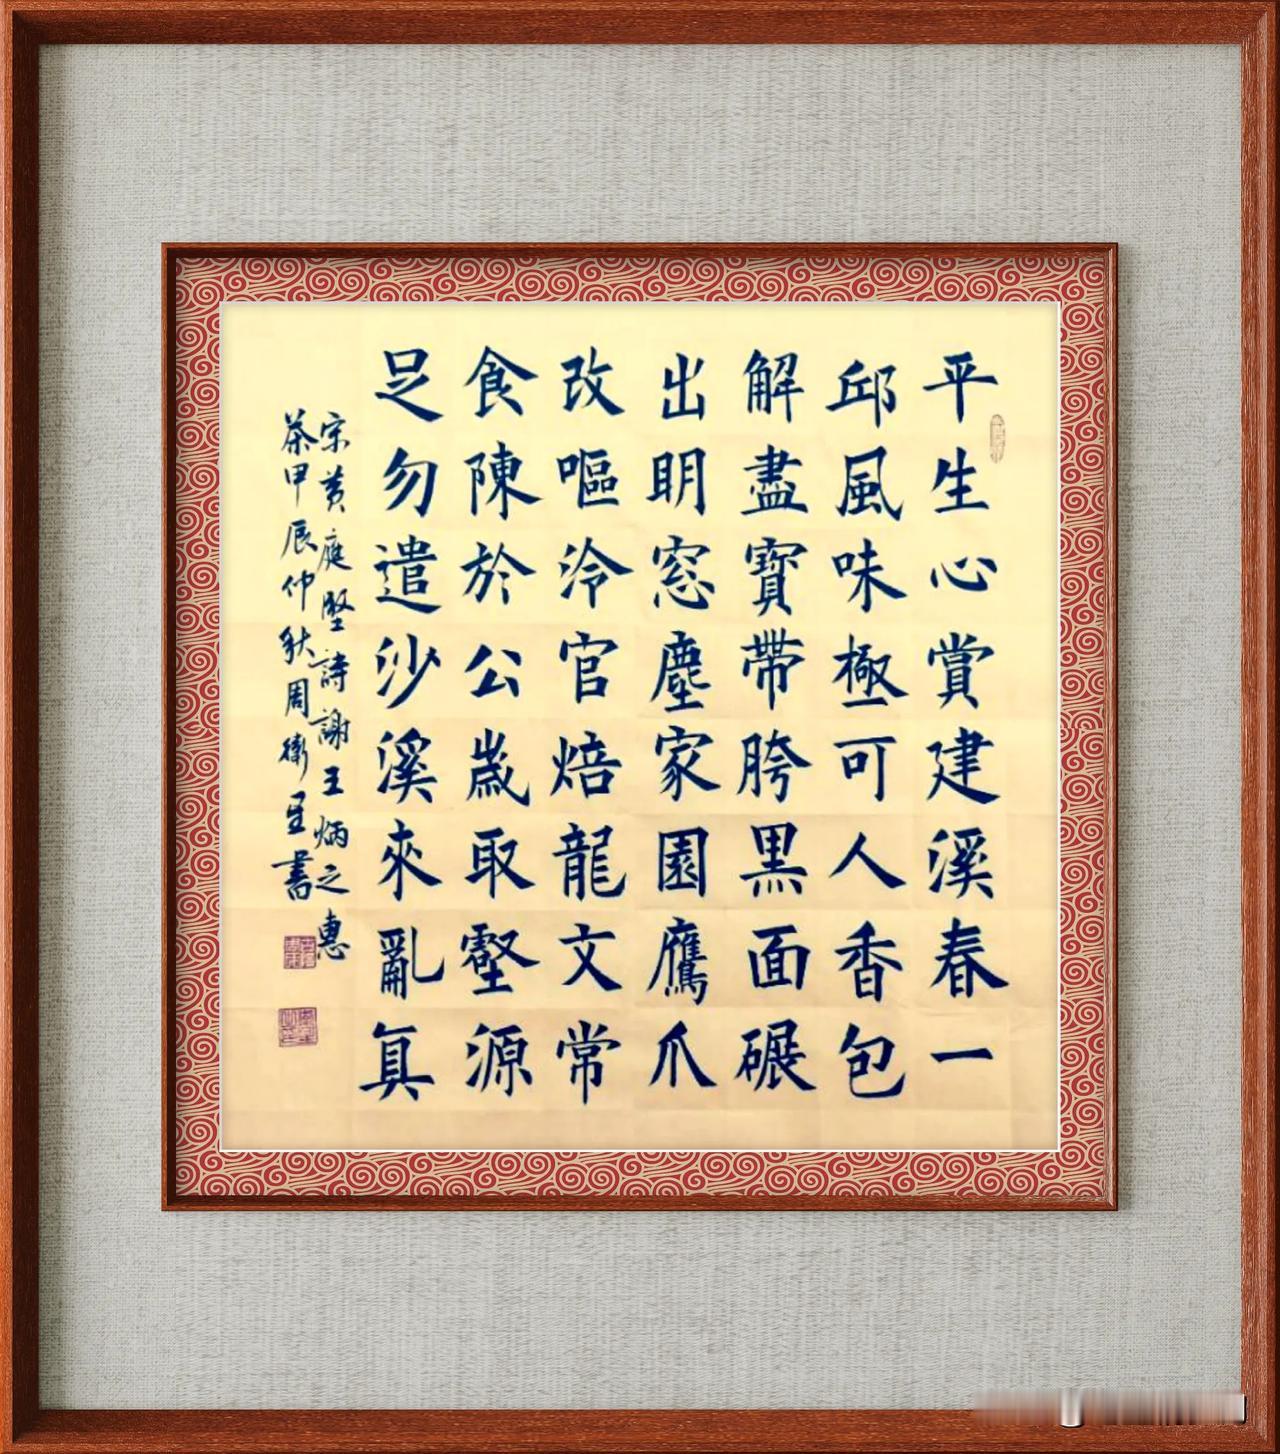 平生心賞建溪春一
邱風味極可人香包
解盡寶帶胯黑面碾
出明窓塵家園鷹爪
改嘔泠官焙龍文常
食陳於公歲取壑源
足勿遣沙溪來亂真
宋黃庭堅詩謝王炳之惠
茶甲辰仲秋周衛星書